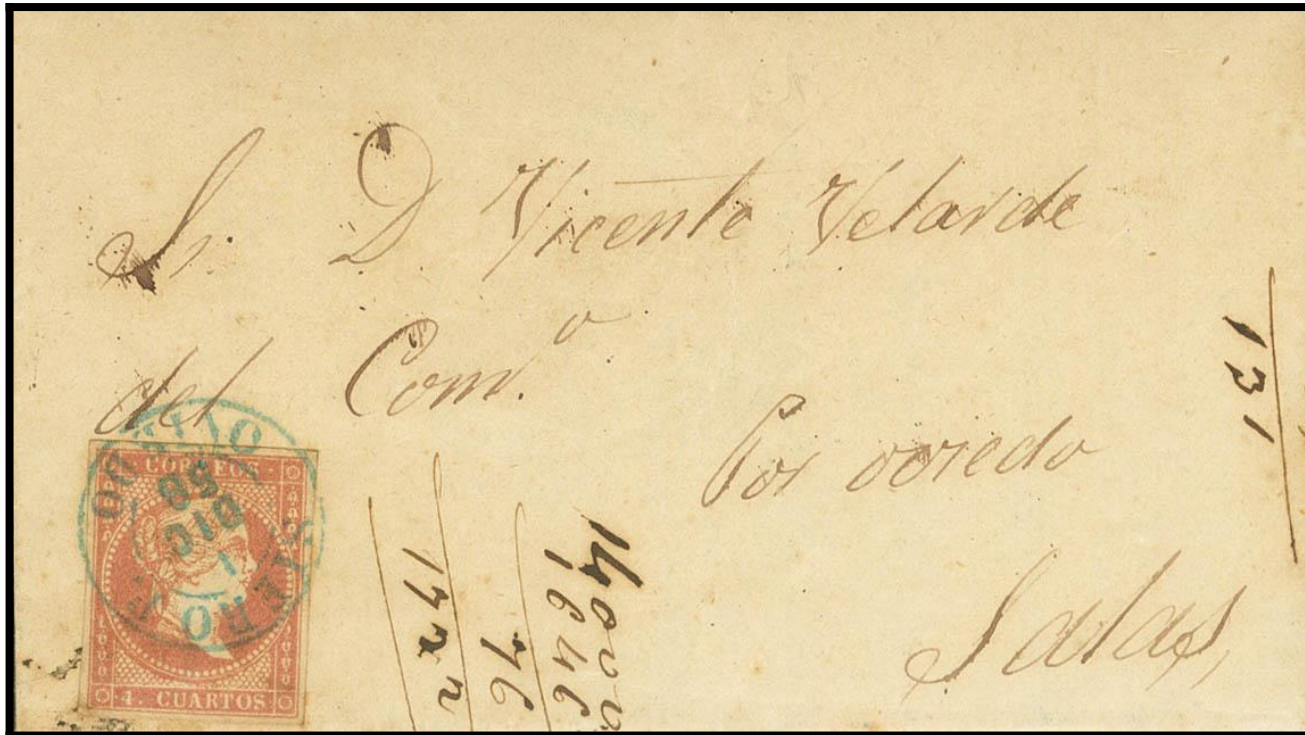 Sr. D Vicente Velarde
del Com.º
Por oviedo
Salas,
131
CORREOS
4. CUARTOS
DIC
58
1646
76
172